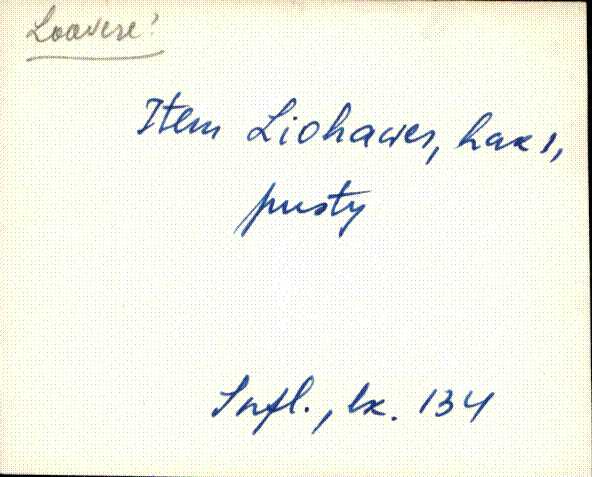 Loovere?
Item Liohawer, hak 1,
pusty
Infl., lk. 134